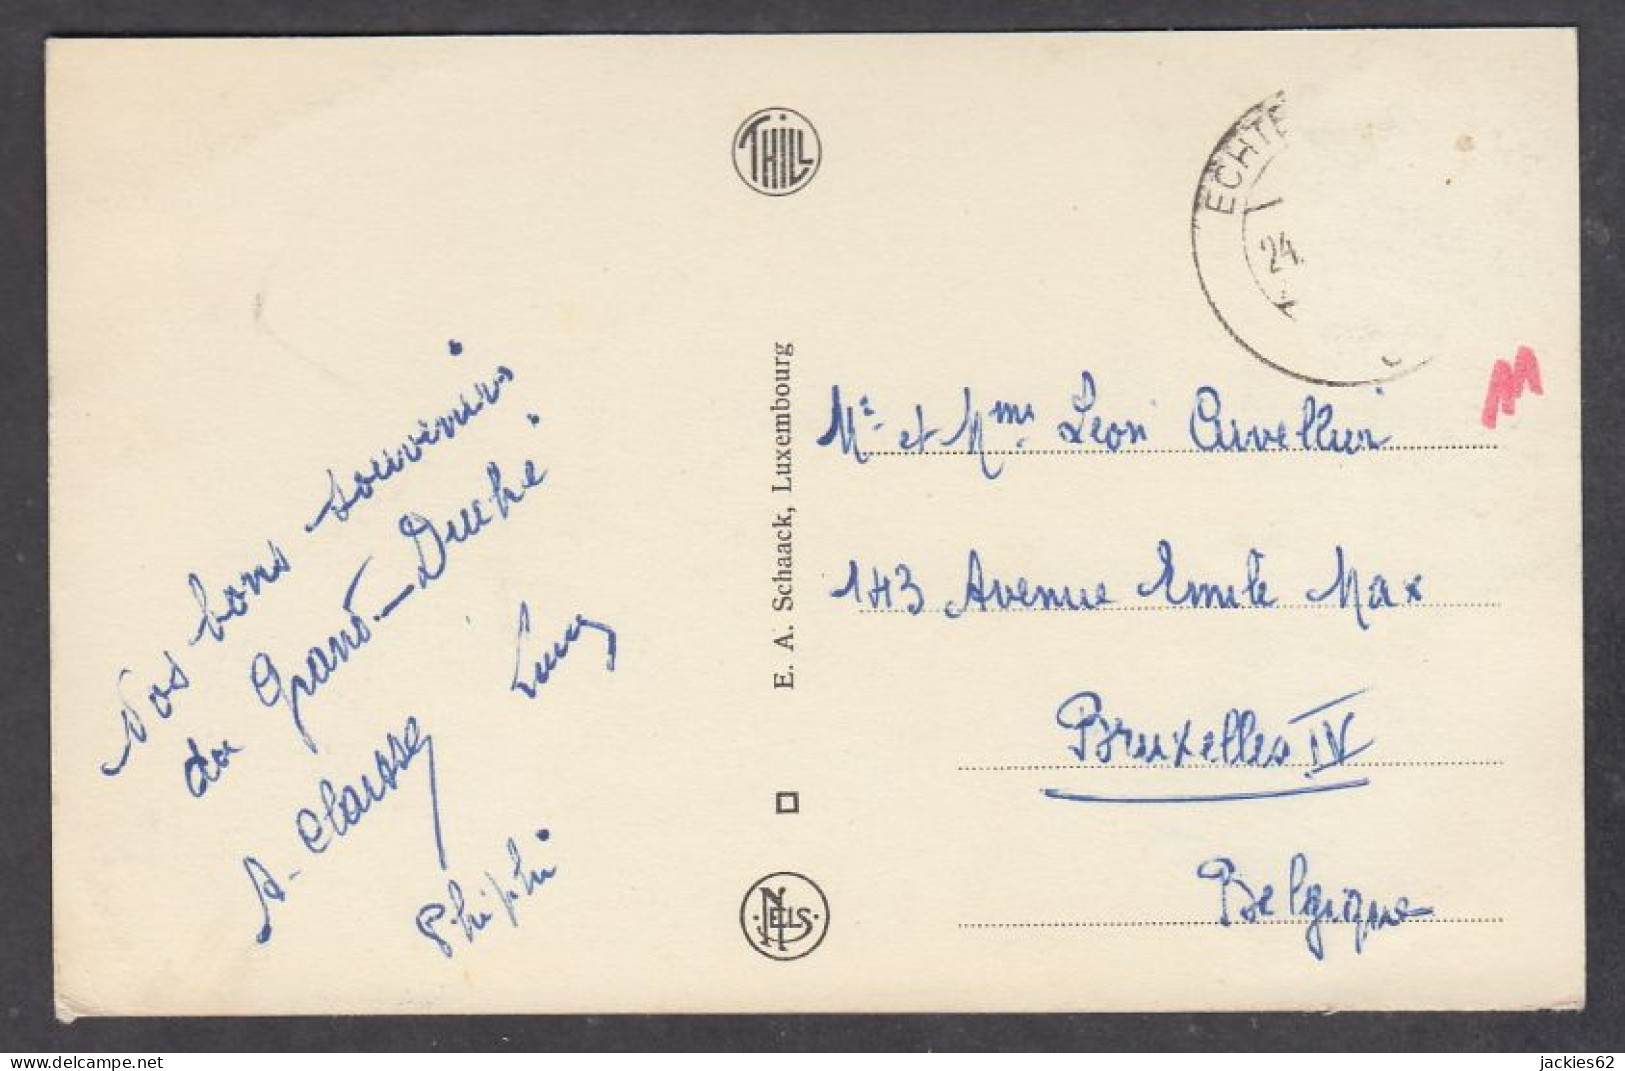 Nos bons souvenirs
du Grand-Duché.
Lucy
A. Clausse
Phiphi
THILL
E. A. Schaack, Luxembourg
NELS
ECHTE
24.
Mr et Mme Léon Cuvellier
143 Avenue Emile Max
Bruxelles IV
Belgique
jackies62